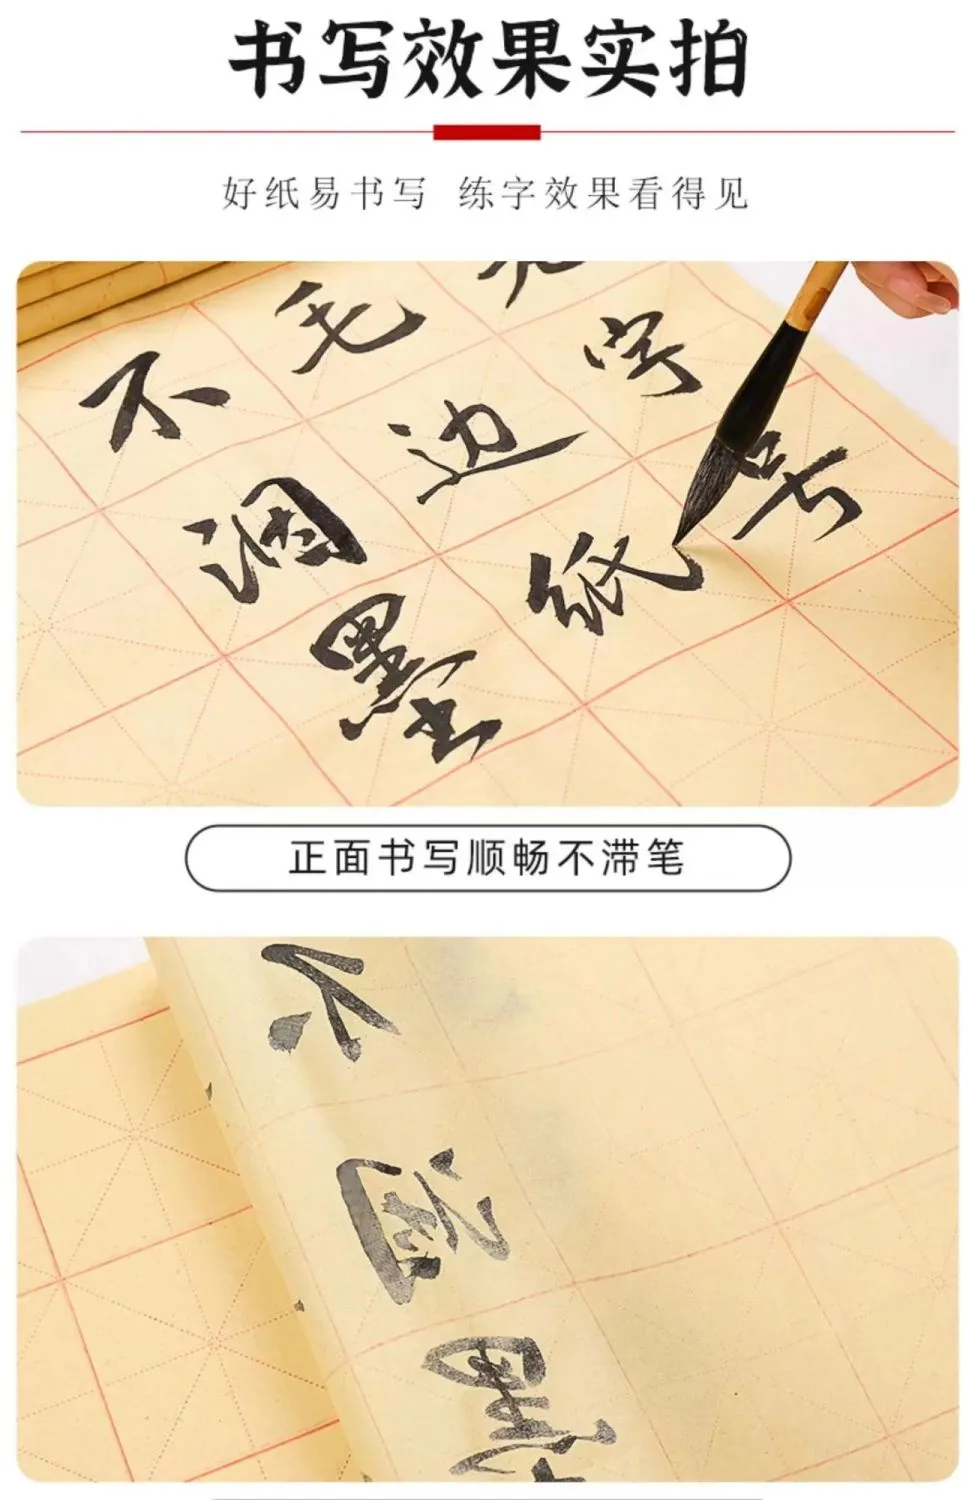 书写效果实拍
好纸易书写 练字效果看得见
字号
毛边纸
不洇墨
正面书写顺畅不滞笔
不洇墨